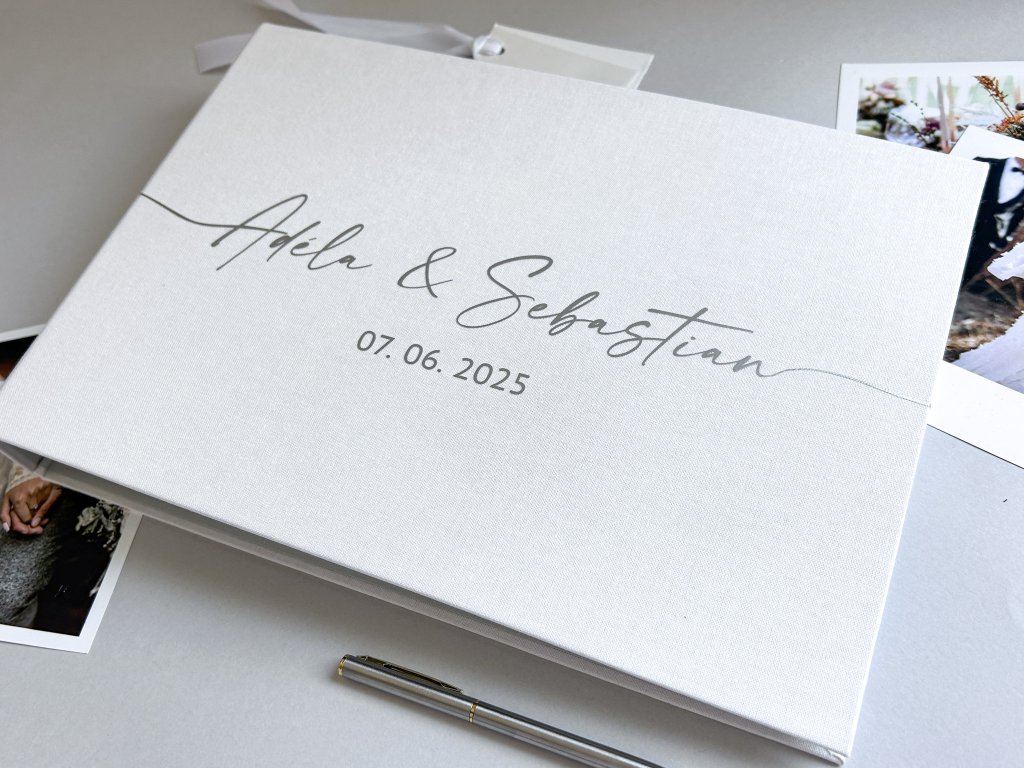 Adéla & Sebastian
07. 06. 2025